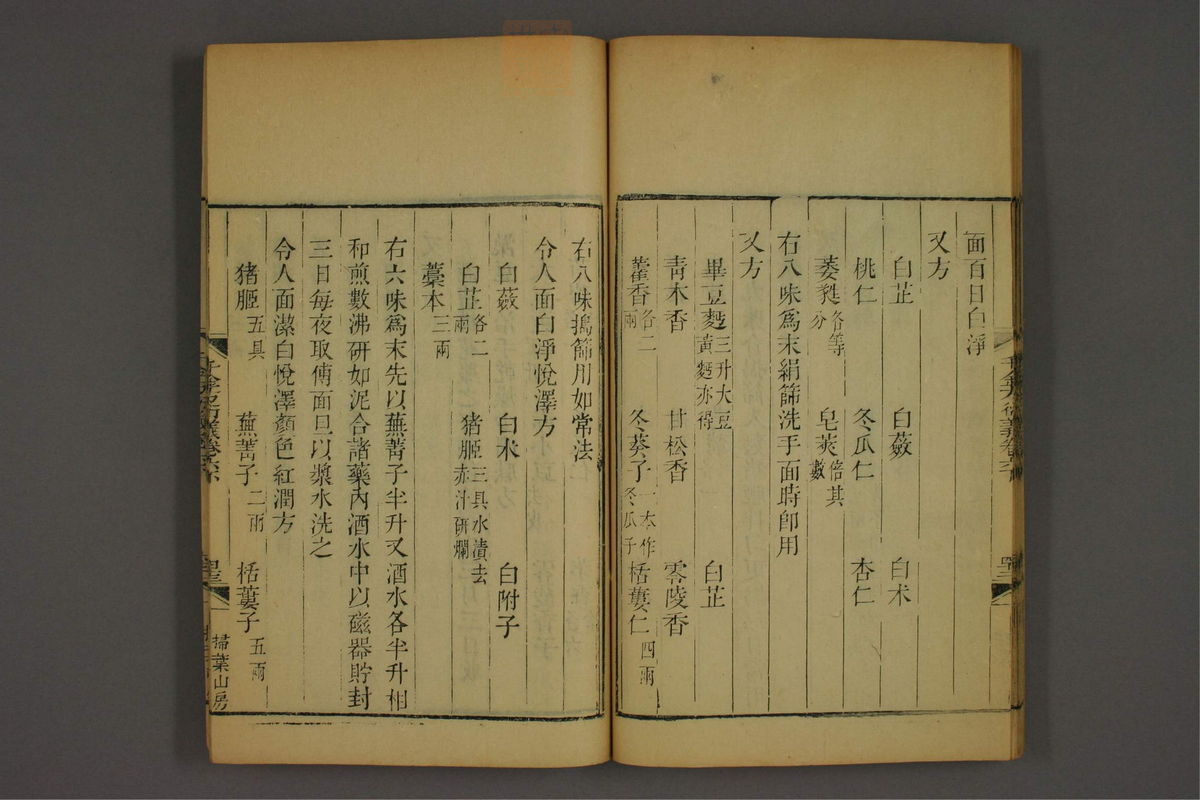 面百日白淨
又方
白芷 白蘞 白术
桃仁 冬瓜仁 杏仁
萎蕤各等分 皂莢倍其數
右八味爲末絹篩洗手面時即用
又方
畢豆麪三升大豆黃麪亦得 白芷
青木香 甘松香 零陵香
藿香各二兩 冬葵子一本作冬瓜子 栝蔞仁四兩
右八味搗篩用如常法
令人面白淨悅澤方
白蘞 白术 白附子
白芷各二兩 猪胰三具水漬去赤汁研爛
藁本三兩
右六味爲末先以蕪菁子半升又酒水各半升相
和煎數沸研如泥合諸藥內酒水中以磁器貯封
三日每夜取傅面旦以漿水洗之
令人面潔白悅澤顏色紅潤方
猪胰五具 蕪菁子二兩 栝蔞子五兩
千金方衍義卷六
掃葉山房